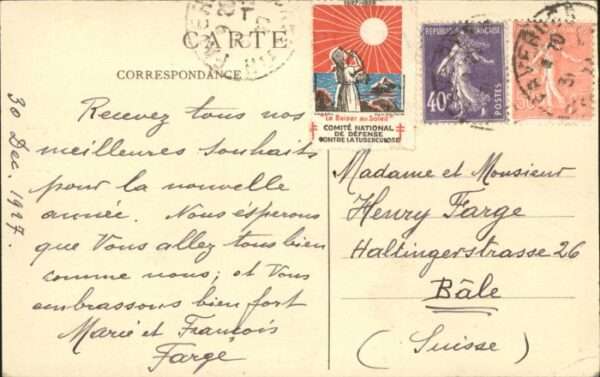 CARTE
CORRESPONDANCE
30 Dec. 1927.
Recevez tous nos
meilleures souhaits
pour la nouvelle
année. Nous ésperons
que Vous allez tous bien
comme nous; et Vous
embrassons bien fort
Marie et François
Farge
Le Baiser au Soleil
COMITÉ NATIONAL
DE DÉFENSE
CONTRE LA TUBERCULOSE
RÉPUBLIQUE FRANÇAISE
40c
POSTES
Madame et Monsieur
Henry Farge
Haltingerstrasse 26
Bâle
(Suisse)